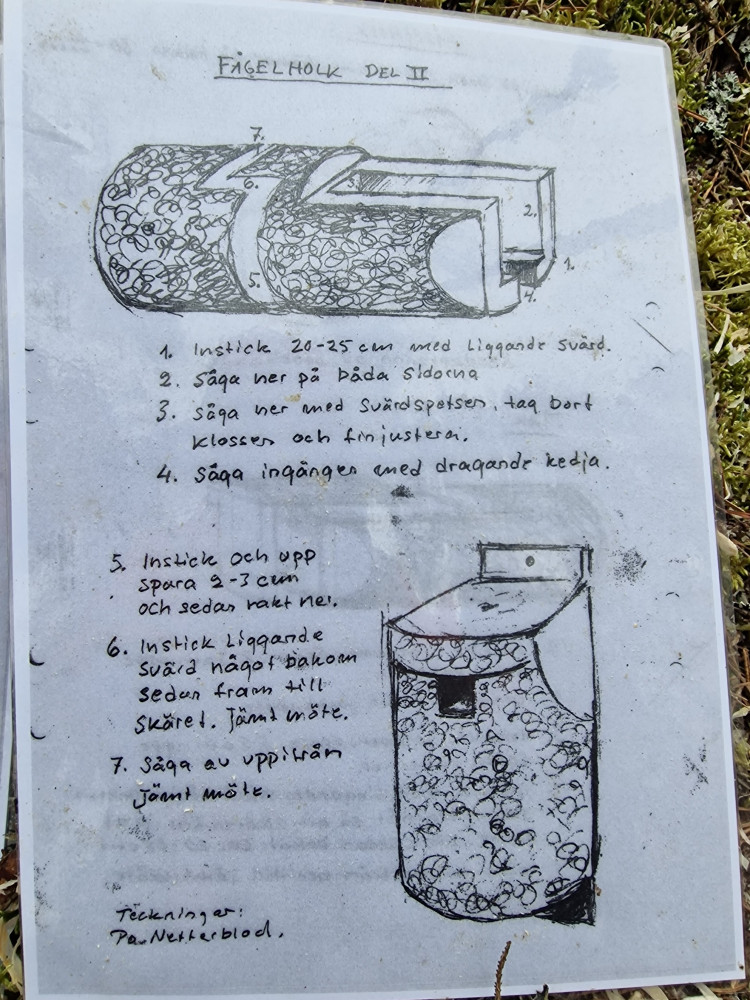 FÅGELHOLK DEL II
7.
6.
3.
2.
5.
1.
4.
1. Instick 20-25 cm med Liggande svärd.
2. Såga ner på båda sidorna
3. såga ner med svärdspetsen, tag bort
klossen och finjustera.
4. Såga ingången med dragande kedja.
5. Instick och upp
spara 2-3 cm
och sedan rakt ner.
6. Instick Liggande
svärd något bakom
sedan fram till
skäret. Jämt möte.
7. Såga av uppifrån
jämt möte.
Teckningar:
Pa. Netterblad.